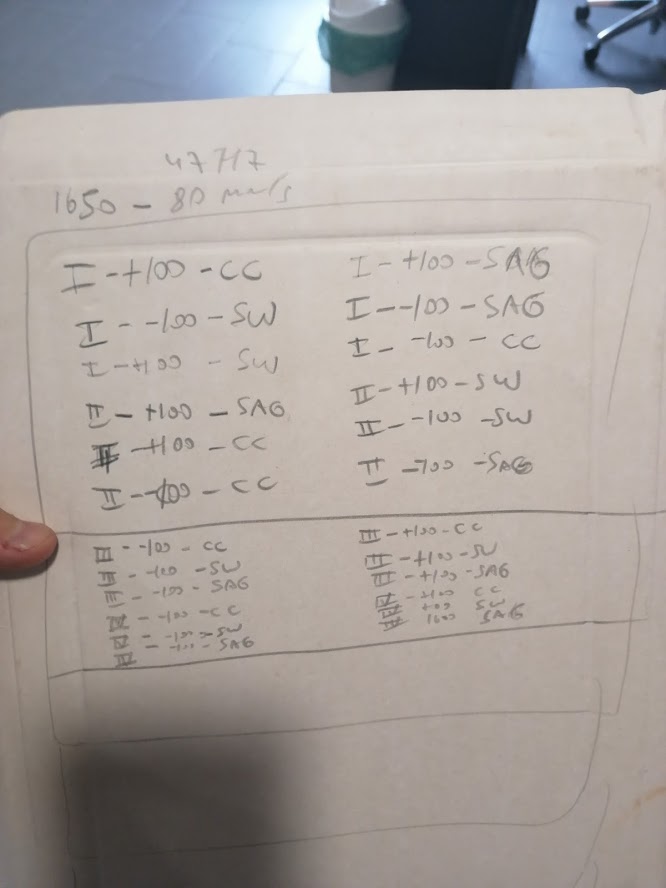 47717
1650 - 80 mm/s
I - +100 - CC
I - -100 - SW
I - +100 - SW
II - +100 - SAG
II - +100 - CC
II - -100 - CC
I - +100 - SAG
I - -100 - SAG
I - -100 - CC
II - +100 - SW
II - -100 - SW
II -100 - SAG
III - -100 - CC
III - -100 - SW
III - -100 - SAG
- -100 - CC
- -100 - SW
- -100 - SAG
III - +100 - CC
III - +100 - SW
III - +100 - SAG
- +100 CC
+100 SW
SAG